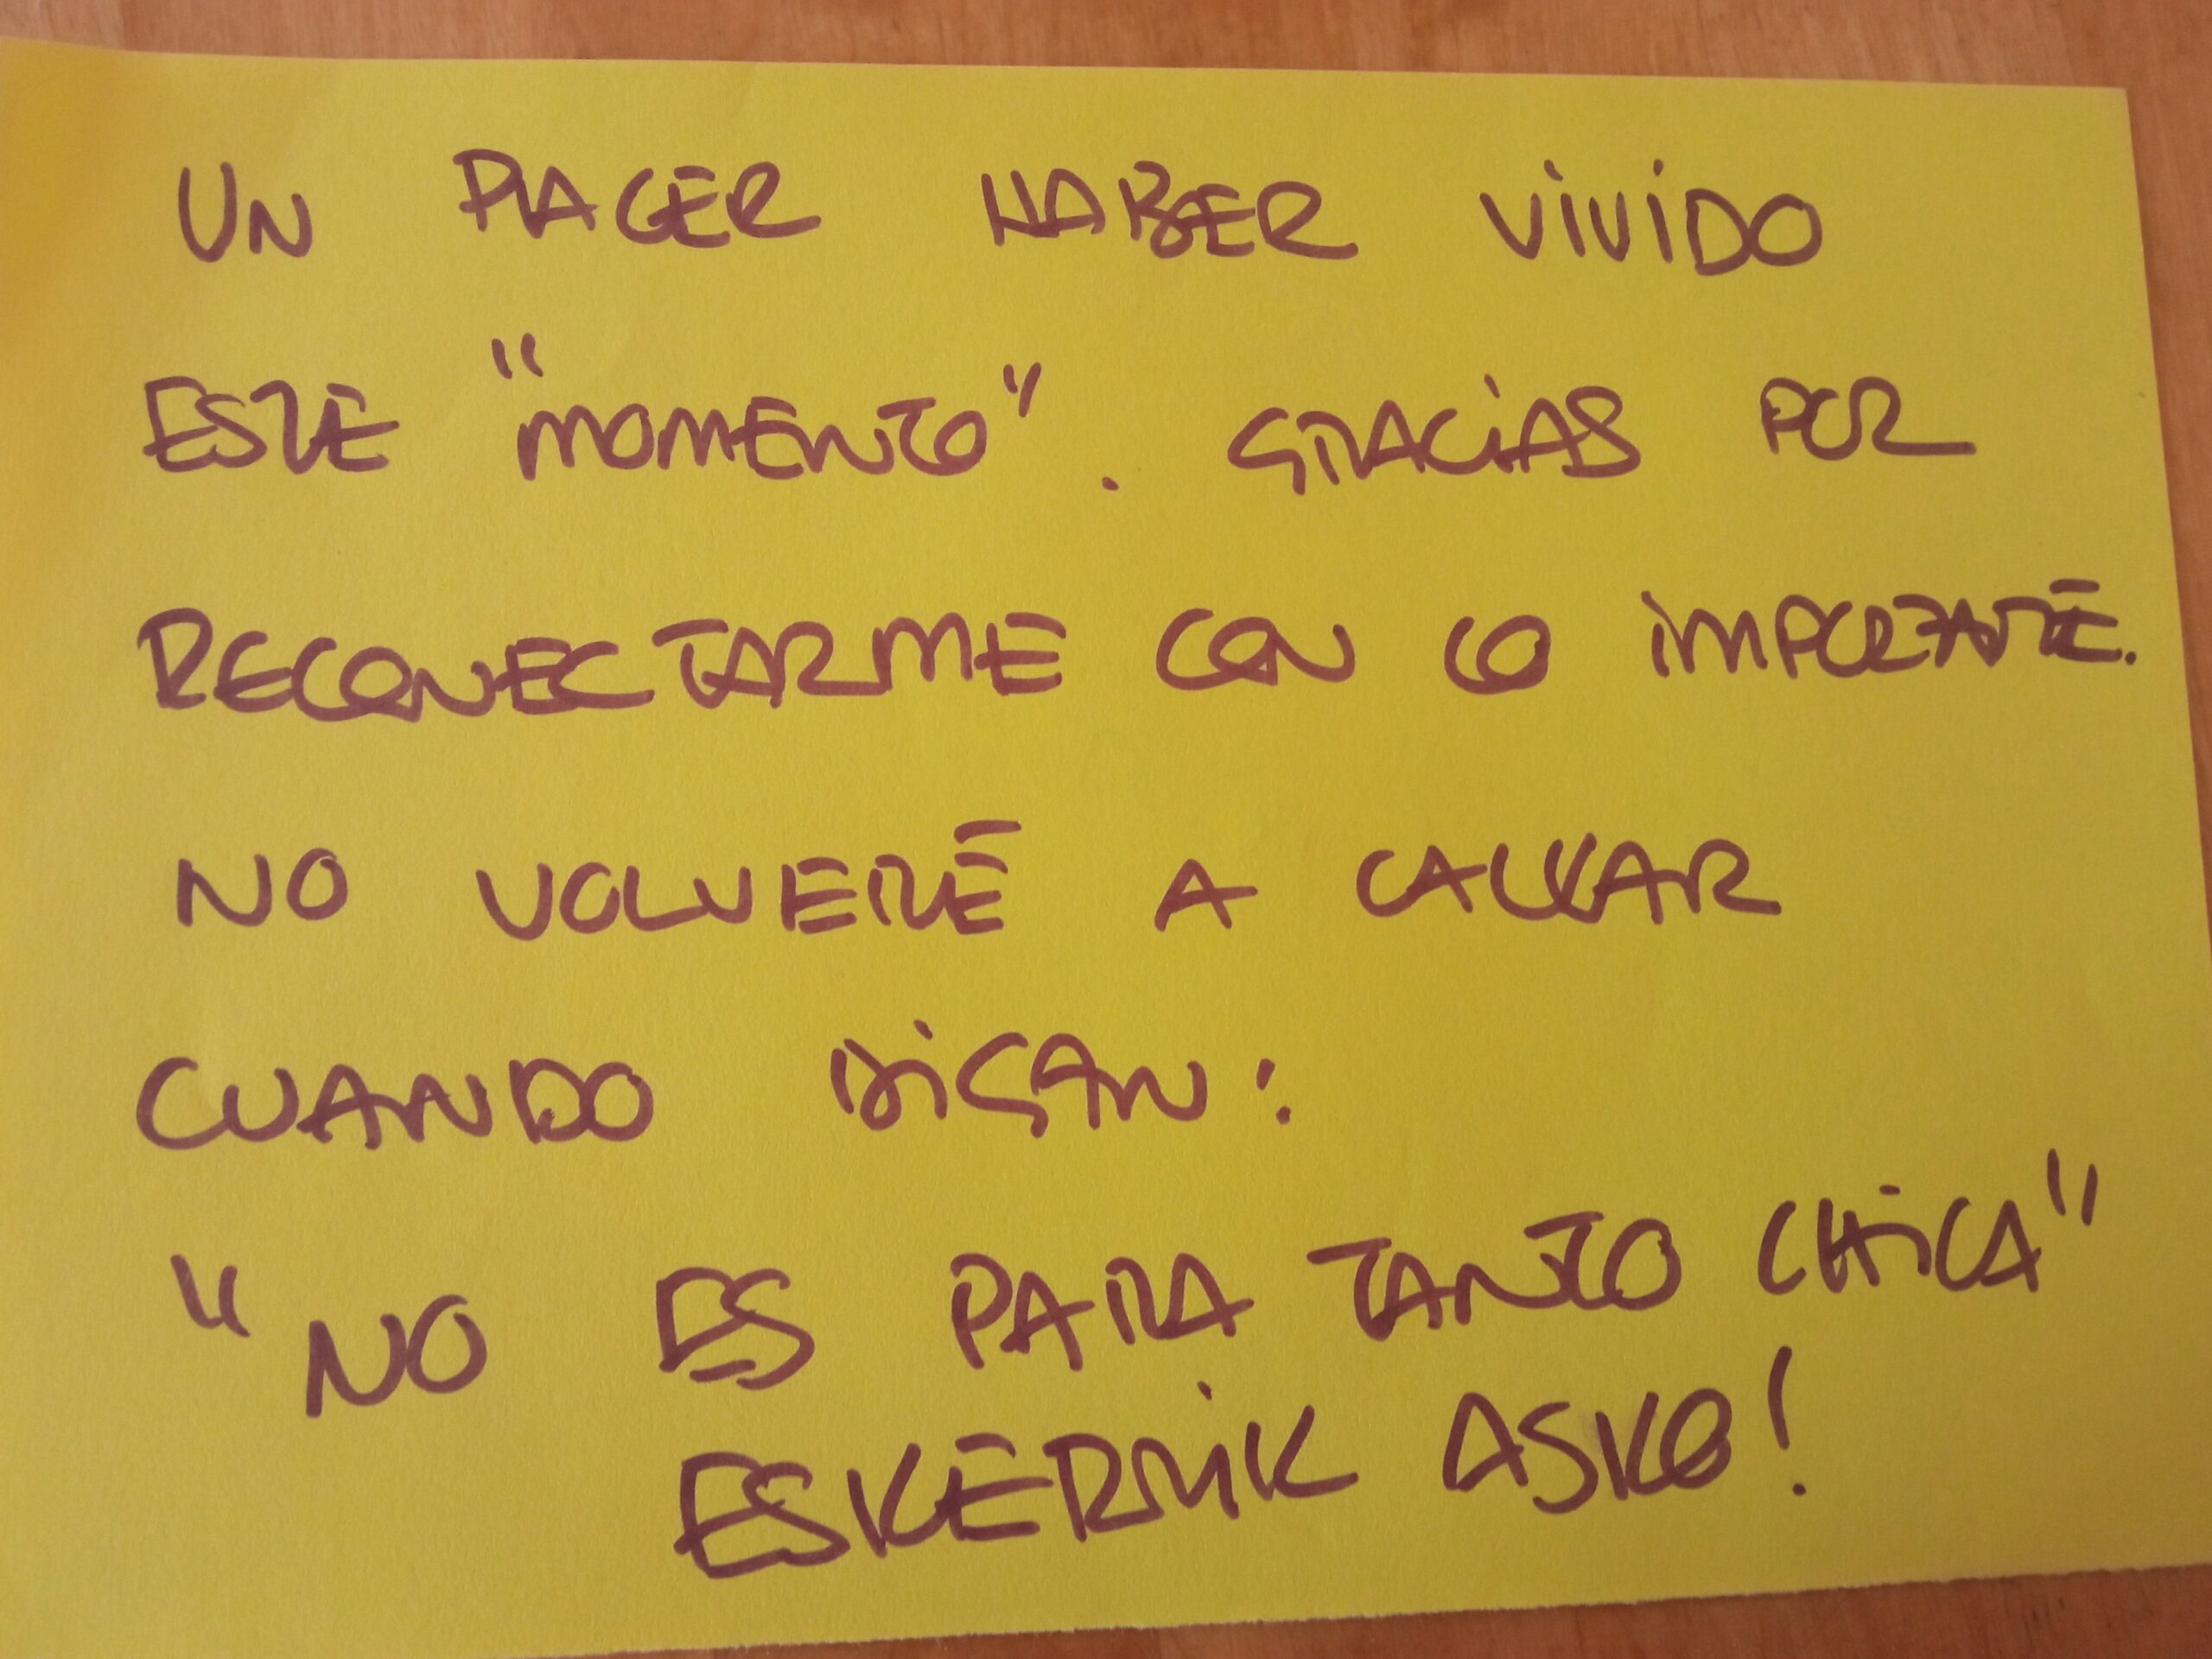 UN PLACER HABER VIVIDO
ESTE "MOMENTO". GRACIAS POR
RECONECTARME CON LO IMPORTANTE.
NO VOLVERÉ A CALLAR
CUANDO DIGAN:
"NO ES PARA TANTO CHICA"
ESKERRIK ASKO!